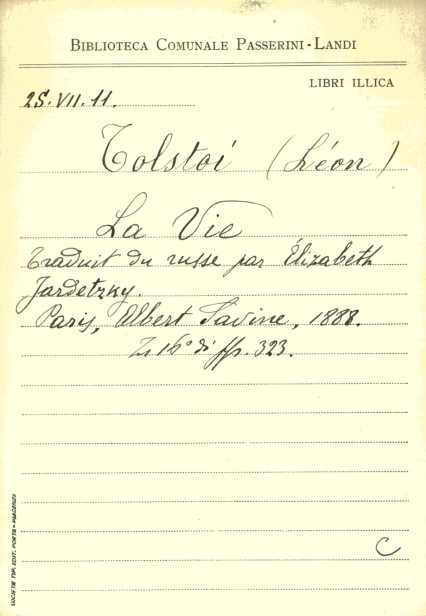 BIBLIOTECA COMUNALE PASSERINI-LANDI
LIBRI ILLICA
25.VII.11.
Tolstoi (Léon)
La Vie
Traduit du russe par Élizabeth
Jardetzky.
Paris, Albert Savine, 1888.
In 16° di pp. 323.
C
SOCIETÀ TIP. EDIT. PORTA - PIACENZA